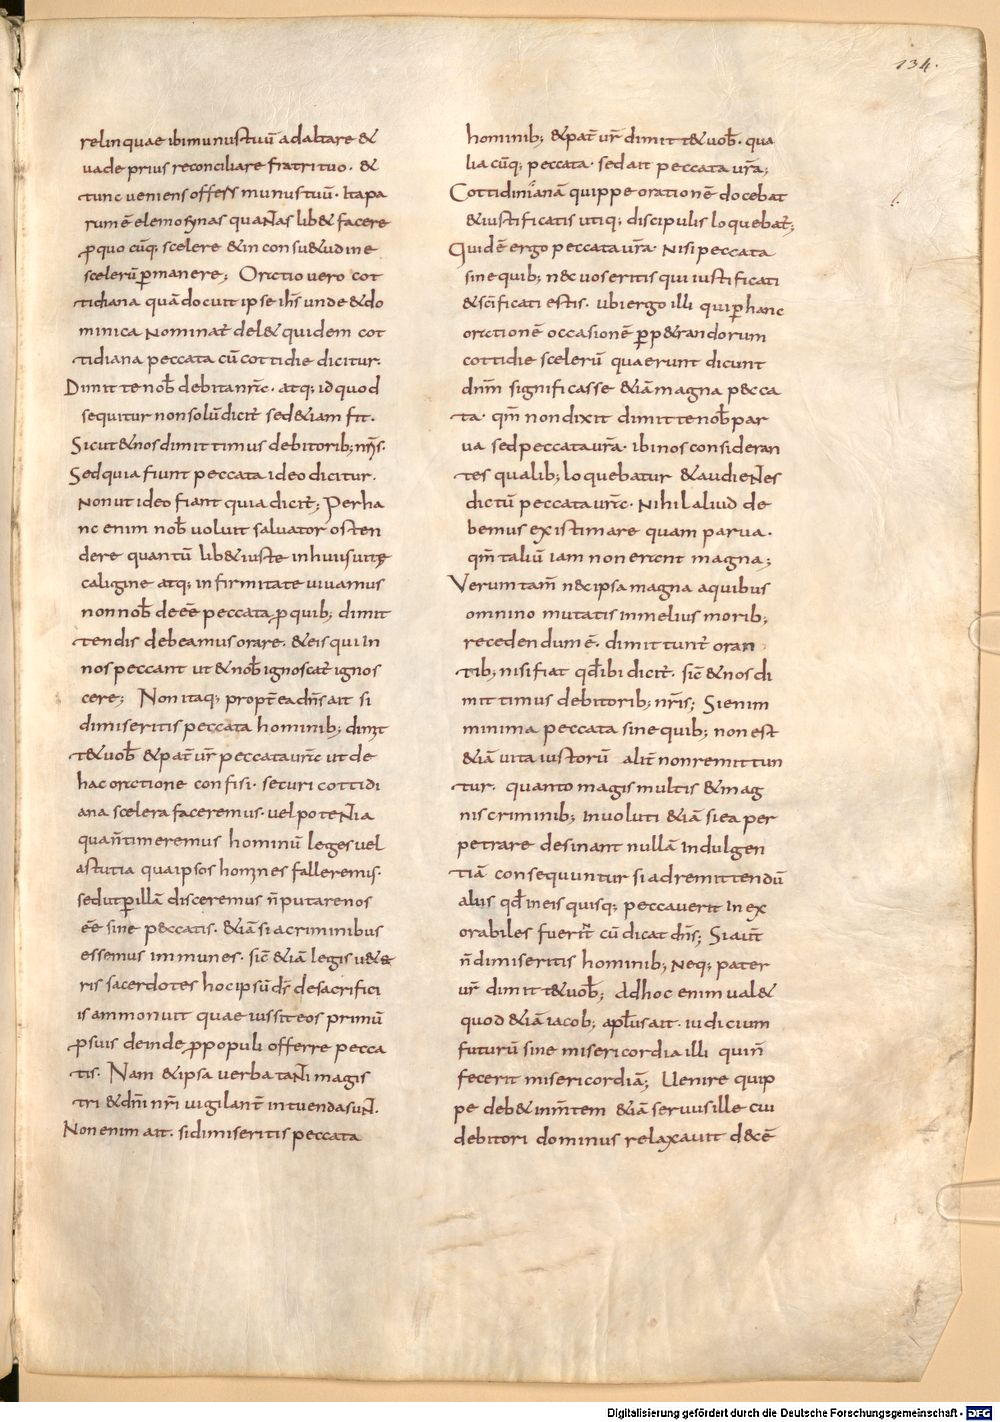 134.
relinquae ibi munus tuū ad altare &
uade prius reconciliare fratri tuo · &
tunc ueniens offers munus tuū · Ita pa
rum ē elemosynas quantas lib& facere
ꝓ quo cūq; scelere & in consu&udine
scelerū ꝑmanere; Oratio uero cot
tidiana quā docuit ipse ihs unde & do
minica nominat̄ del& quidem cot
tidiana peccata cū cottidie dicitur·
Dimitte nob̄ debita nr̄a · atq; id quod
sequitur non solū dicit̄ sed &iam fit ·
Sicut & nos dimittimus debitorib; nr̄is·
Sed quia fiunt peccata ideo dicitur·
non ut ideo fiant quia dicit̄; Per ha
nc enim nob̄ uoluit saluator osten
dere quantū lib& iuste in huius uitę
caligine atq; infirmitate uiuamus
non nob̄ deēē peccata ꝓ quib; dimit
tendis debeamus orare · & eis qui in
nos peccant ut & nob̄ ignoscat̄ ignos
cere; Non itaq; propt̄ea dn̄s ait si
dimiseritis peccata hominib; dimit
t& uob̄ & pat̄ ur̄ peccata ur̄a ut de
hac oratione confisi · securi cottidi
ana scelera faceremus · uel potentia
qua n̄ timeremus hominū leges uel
astutia qua ipsos homines falleremis·
sed ut ꝑ illā disceremus n̄ putare nos
ēē sine peccatis · &iā si a criminibus
essemus immunes · sic̄ &iā legis u&e
ris sacerdotes hoc ipsū ds̄ de sacrifici
is ammonuit quae iussit eos primū
ꝓ suis deinde ꝓ populi offerre pecca
tis · Nam & ipsa uerba tanti magis
tri & dn̄i nr̄i uigilant̄ intuenda sunt.
Non enim ait · si dimiseritis peccata
hominib; & pat̄ ur̄ dimitt& uob̄ · qua
lia cūq; peccata · sed ait peccata ur̄a;
Cottidianā quippe orationē docebat
& iustificatis utiq; discipulis loquebat̄;
Quid ē ergo peccata ur̄a · nisi peccata
sine quib; nec uos eritis qui iustificati
& sc̄ificati estis · ubi ergo illi qui ꝑ hanc
orationē occasionē ꝑp&randorum
cottidie scelerū quaerunt dicunt
dnm̄ significasse &iā magna pecca
ta · qm̄ non dixit dimitte nob̄ par
ua sed peccata ur̄a · ibi nos consideran
tes qualib; loquebatur & audientes
dictū peccata ur̄a · nihil aliud de
bemus existimare quam parua ·
qm̄ taliū iam non erant magna;
Verum tam̄ nec ipsa magna a quibus
omnino mutatis in melius morib;
recedendum ē · dimittunt̄ oran
tib; nisi fiat qd̄ ibi dicit̄ · sic̄ & nos di
mittimus debitorib; nr̄is; Si enim
minima peccata sine quib; non est
&iā uita iustorū alit̄ non remittun
tur · quanto magis multis & mag
nis criminib; inuoluti &iā si ea per
petrare desinant nullā indulgen
tiā consequuntur si ad remittendū
aliis qd̄ in eis quisq; peccauerit in ex
orabiles fuerit̄ cū dicat dn̄s; Si aut̄
n̄ dimiseritis hominib; neq; pater
ur̄ dimitt& uob̄; Ad hoc enim ual&
quod &iā iacob; apl̄us ait · iudicium
futurū sine misericordia illi qui n̄
fecerit misericordiā; Uenire quip
pe deb& in m̄tem &iā seruus ille cui
debitori dominus relaxauit decē
Digitalisierung gefördert durch die Deutsche Forschungsgemeinschaft - DFG